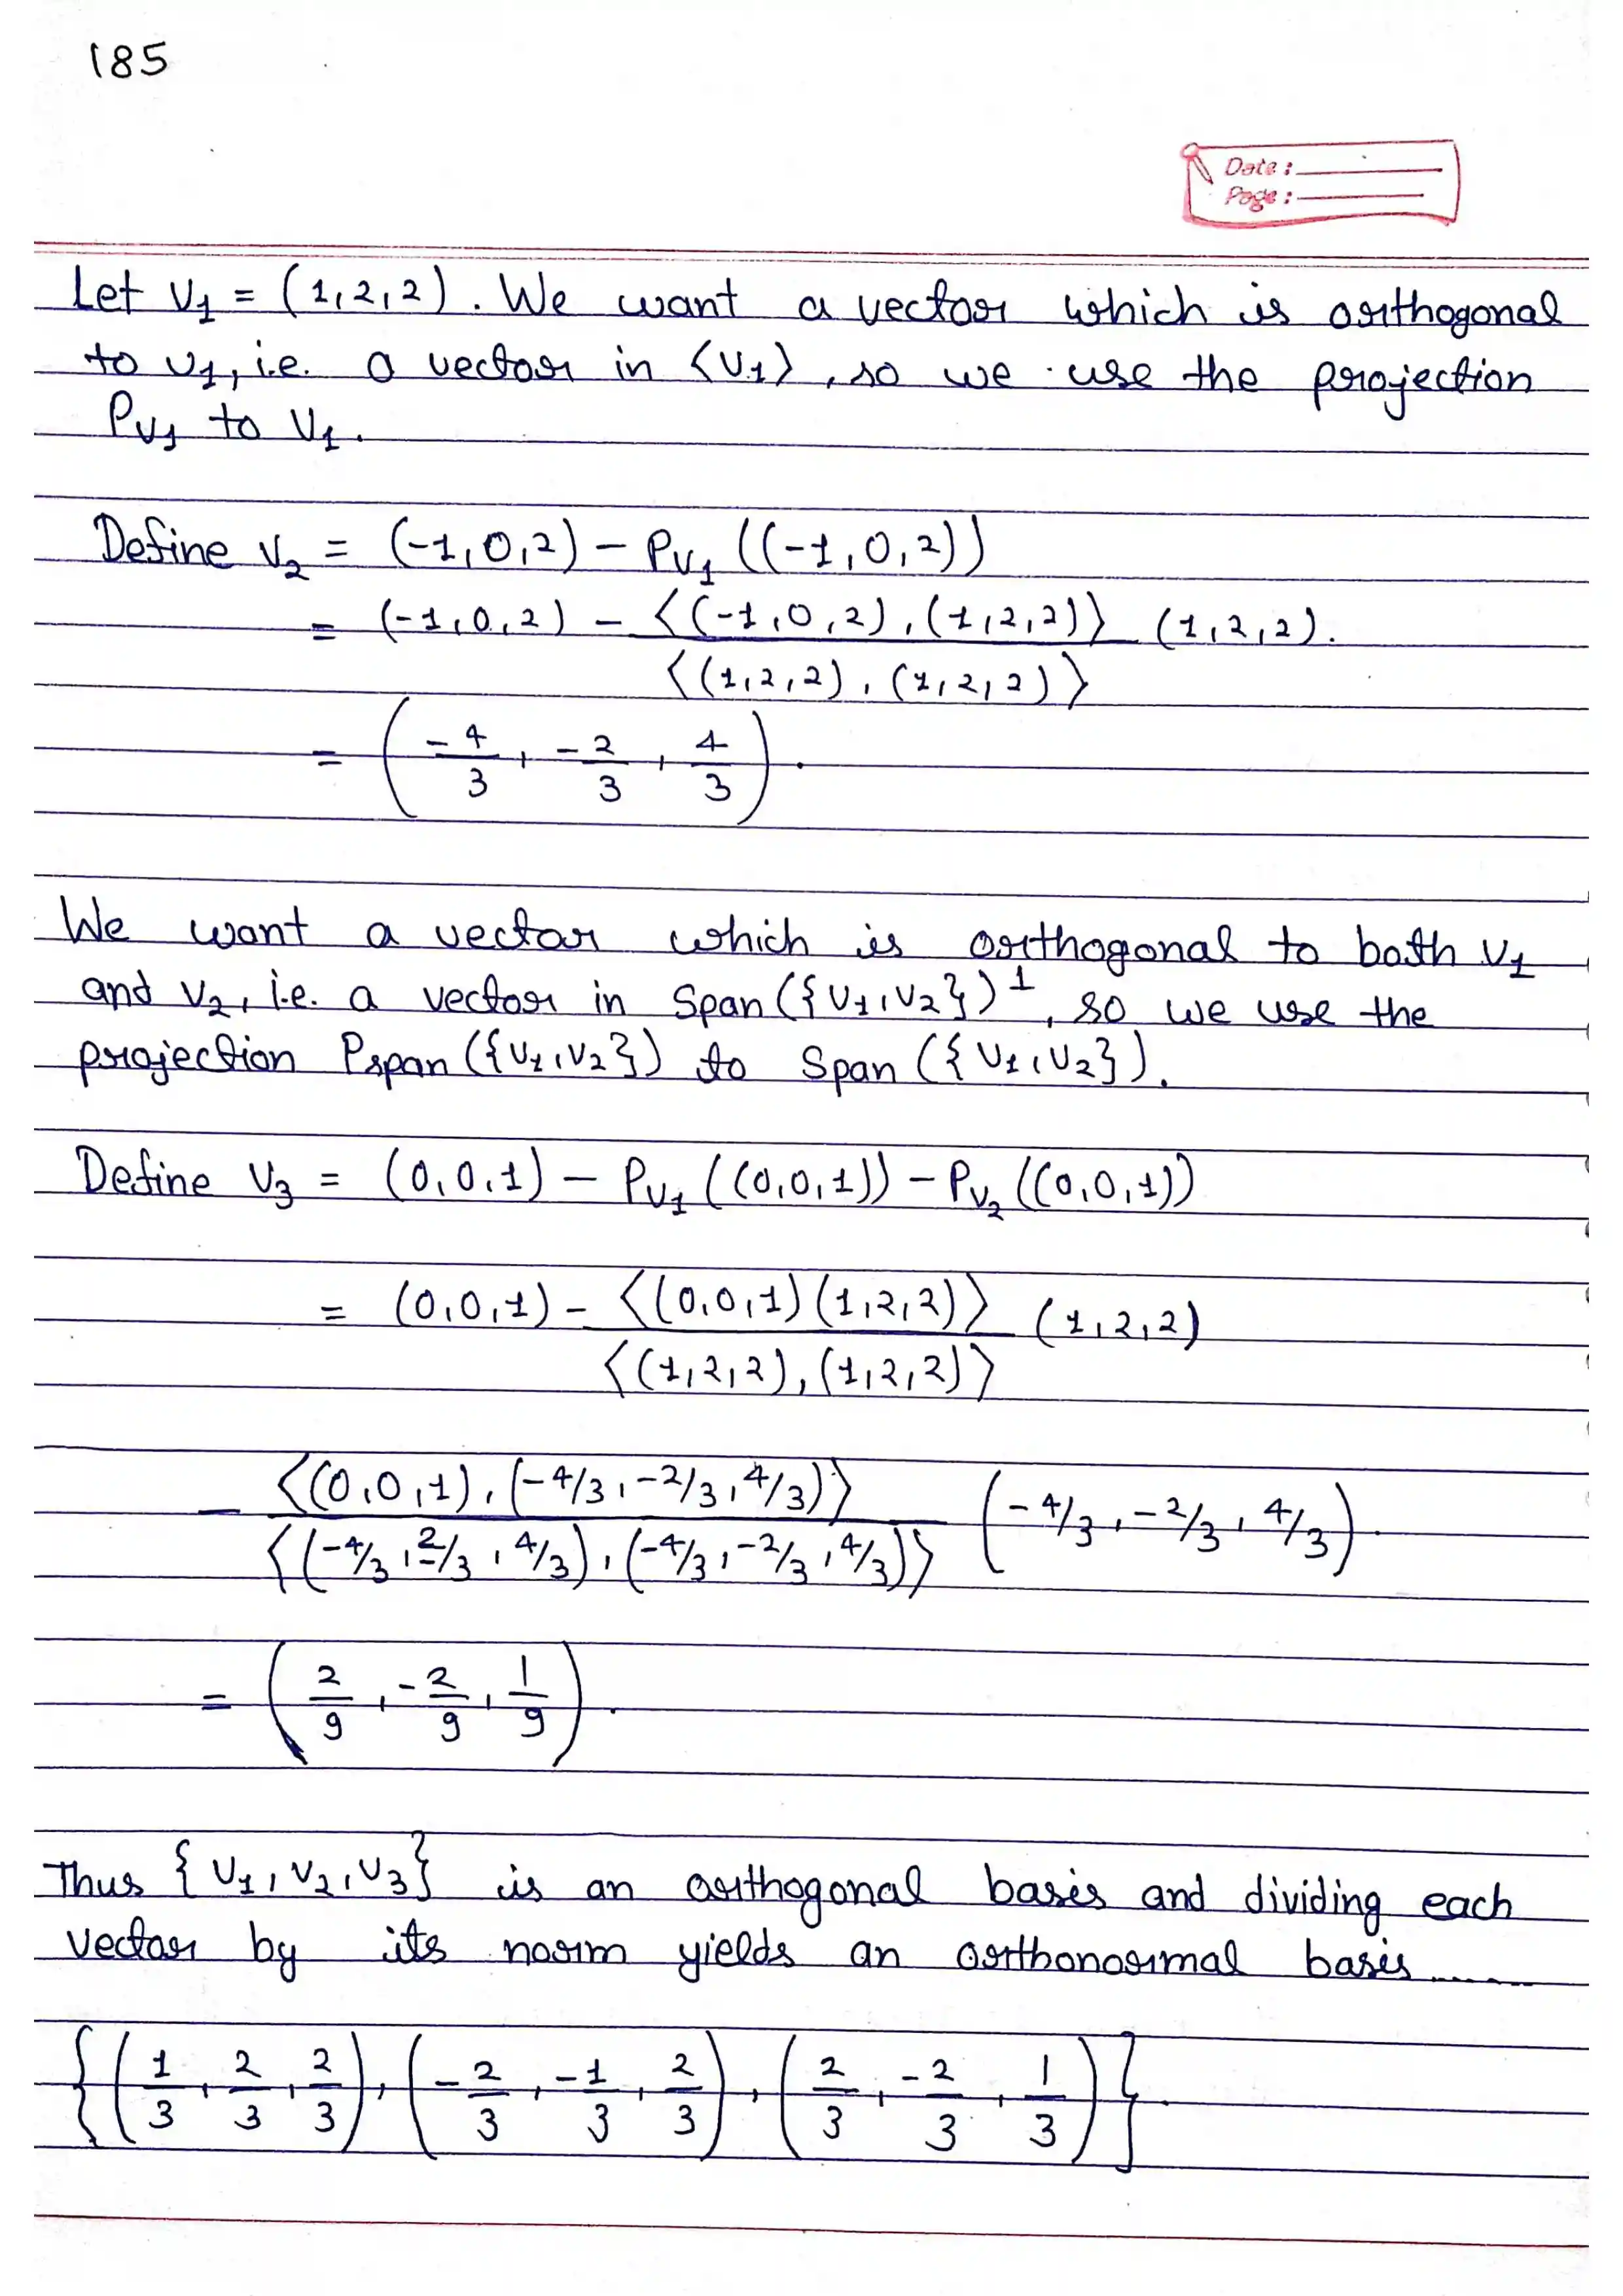 185
Date :
Page :
Let v₁ = (1,2,2). We want a vector which is orthogonal
to v₁, i.e. a vector in ⟨v₁⟩, so we use the projection
Pv₁ to v₁.
Define v₂ = (-1,0,2) - Pv₁ ((-1,0,2))
= (-1,0,2) - ⟨(-1,0,2), (1,2,2)⟩ / ⟨(1,2,2), (1,2,2)⟩ (1,2,2).
= (-4/3, -2/3, 4/3).
We want a vector which is orthogonal to both v₁
and v₂, i.e. a vector in Span ({v₁,v₂})⊥, so we use the
projection Pspan ({v₁,v₂}) to Span ({v₁,v₂}).
Define v₃ = (0,0,1) - Pv₁ ((0,0,1)) - Pv₂ ((0,0,1))
= (0,0,1) - ⟨(0,0,1) (1,2,2)⟩ / ⟨(1,2,2), (1,2,2)⟩ (1,2,2)
- ⟨(0,0,1), (-4/3, -2/3, 4/3)⟩ / ⟨(-4/3, -2/3, 4/3), (-4/3, -2/3, 4/3)⟩ (-4/3, -2/3, 4/3).
= (2/9, -2/9, 1/9).
Thus {v₁, v₂, v₃} is an orthogonal basis and dividing each
vector by its norm yields an orthonormal basis......
{(1/3, 2/3, 2/3), (-2/3, -1/3, 2/3), (2/3, -2/3, 1/3)}.